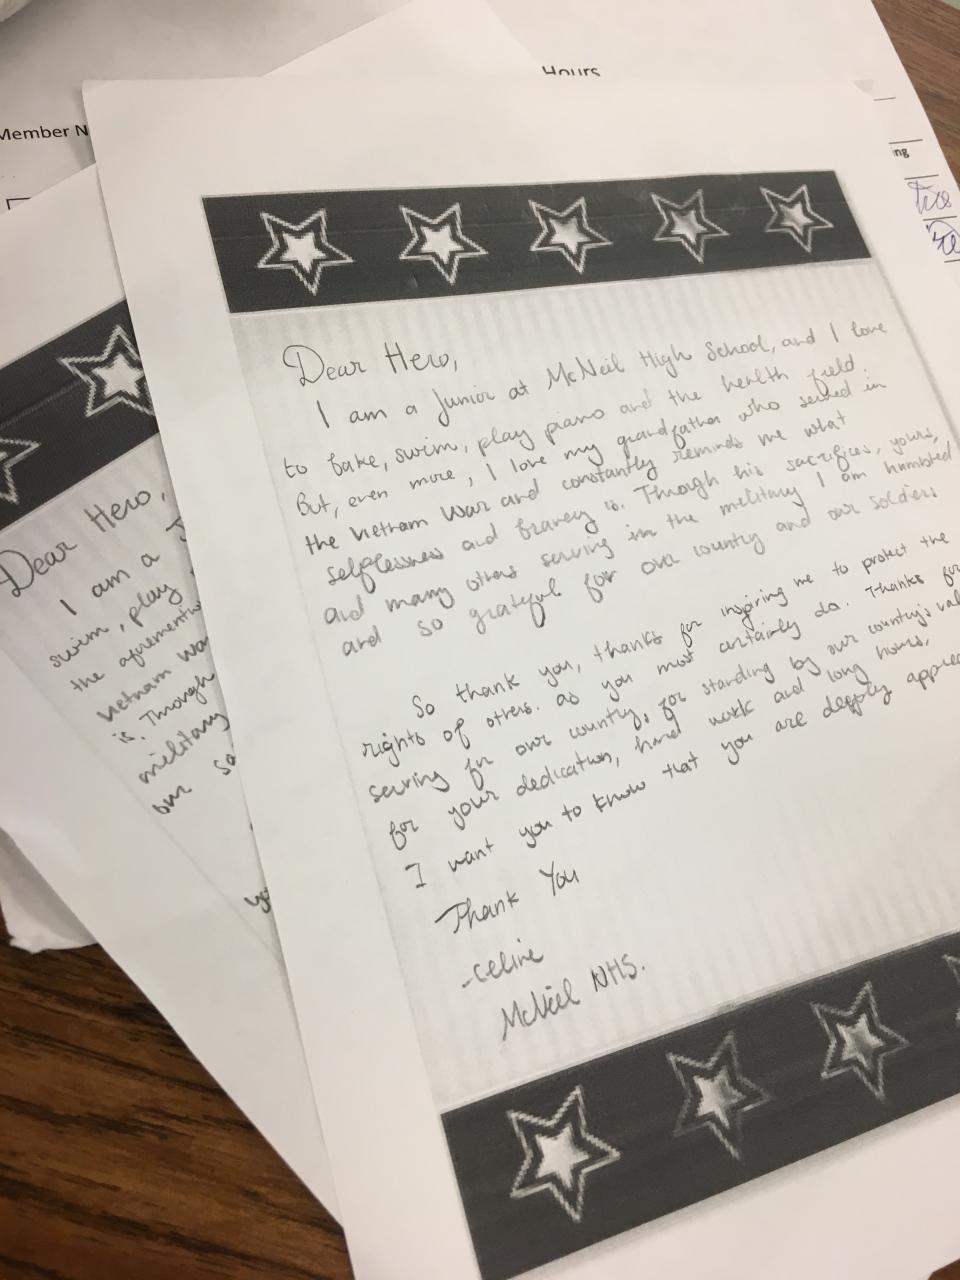 Hours
Member N
ing
Dear Hero,
I am a Junior at McNeil High School, and I love
to bake, swim, play piano and the health field.
But, even more, I love my grandfather who served in
the Vietnam War and constantly reminds me what
selflessness and bravery is. Through his sacrifices, yours,
and many others serving in the military I am humbled
and so grateful for our country and our soldiers
So thank you, thanks for inspiring me to protect the
rights of others. as you most certainly do. Thanks for
serving for our country, for standing by our country's val
for your dedication, hard work and long hours,
I want you to know that you are deeply apprec
Thank You
-Celine
McNeil NHS.
Dear Hero,
I am a J
swim, play
the aforementio
Vietnam War
is. Through
military
our so
yo